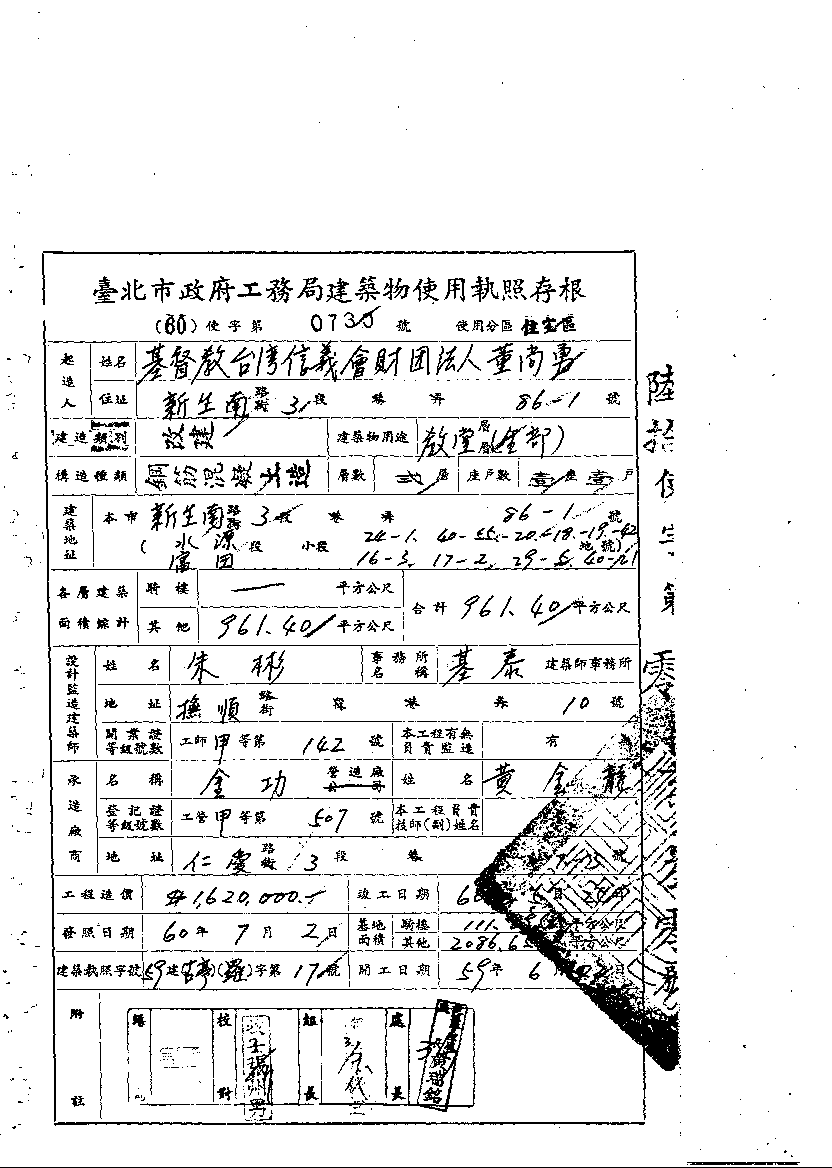 臺北市政府工務局建築物使用執照存根
(60)使字第 0735 號 使用分區 住宅區
起造人 姓名 基督教台湾信義會財团法人董尚勇
住址 新生南路街 3段 巷 弄 86-1 號
建造類別 改建 建築物用途 教堂 層層(全部)
構造種類 鋼筋混凝土造 層數 層 座戶數 壹座壹戶
建築地址 本市 新生南路街 3段 巷 弄 86-1 號
(水源 富田 段 小段 24-1. 40-55.-20.-18.-19.-42 地號)
16-3. 17-2. 29-5. 40-21
各層建築面積綜計 騎樓 — 平方公尺 合計 961.40 平方公尺
其他 961.40 平方公尺
設計監造建築師 姓名 朱彬 事務所名稱 基泰 建築師事務所
地址 撫順路街 段 巷 弄 10 號
開業證等級號數 工師甲等第 142 號 本工程有無負責監造 有
承造廠商 名稱 金功 營造廠公司 姓名 黃金龍
登記證等級號數 工營甲等第 507 號 本工程負責技師(副)姓名
地址 仁愛路街 3段 巷 號
工程造價 1,620,000.- 竣工日期
發照日期 60年 7月 2日 基地面積 騎樓 111. 平方公尺
其他 2086.6 平方公尺
建築執照字號 59建(古亭)(羅)字第 17號 開工日期 59年 6月 日
附註 繕 校對 組長 處長
陸拾使字第零